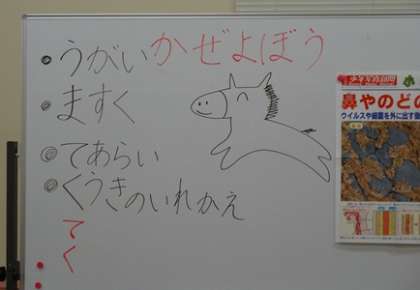 かぜよぼう
うがい
ますく
てあらい
くうきのいれかえ
てく
鼻やのど
ウイルスや細菌を外に出す